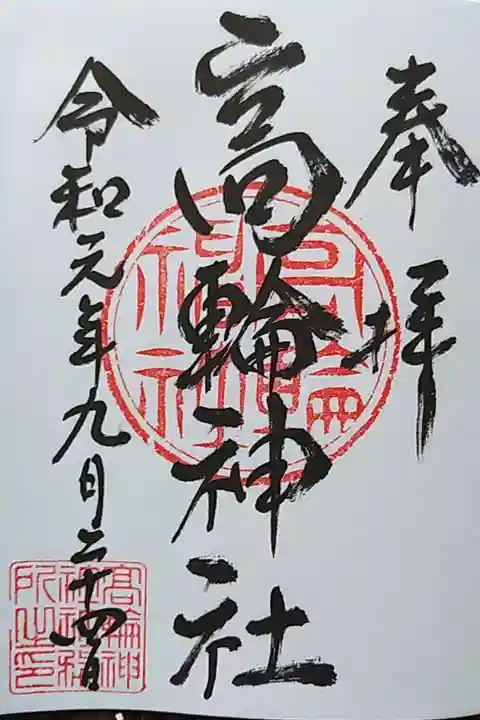 奉拝
高輪神社
令和元年九月二十四日
高輪神社
高輪神
社社務
所之印